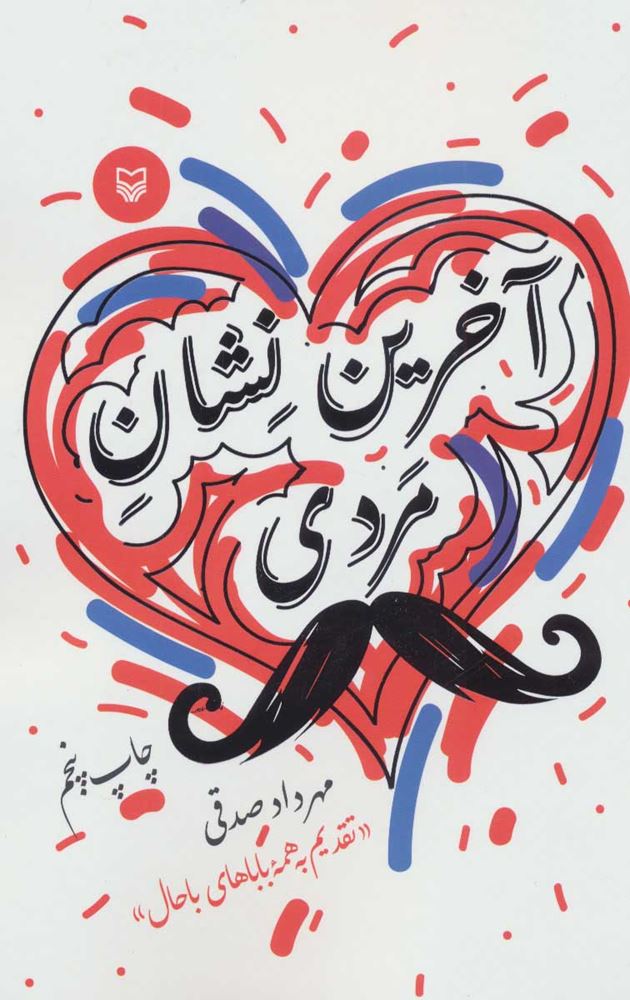 آخرین نِشانِ
مَردی
چاپ پنجم
مهرداد صدقی
«تقدیم به همهٔ باباهای باحال»